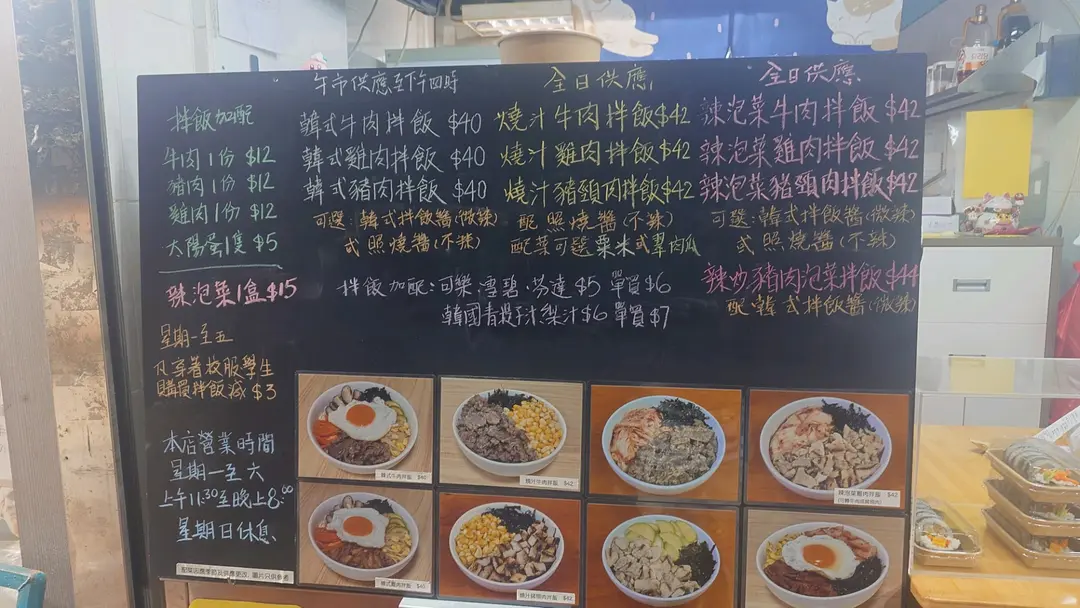 拌飯加配
牛肉1份 $12
豬肉1份 $12
雞肉1份 $12
太陽蛋1隻 $5
辣泡菜1盒 $15
星期一至五
凡穿着校服學生
購買拌飯減 $3
本店營業時間
星期一至六
上午11:30至晚上8:00
星期日休息
午市供應至下午四時
韓式牛肉拌飯 $40
韓式雞肉拌飯 $40
韓式豬肉拌飯 $40
可選:韓式拌飯醬(微辣)
式照燒醬(不辣)
全日供應
燒汁牛肉拌飯 $42
燒汁雞肉拌飯 $42
燒汁豬頸肉拌飯 $42
配照燒醬(不辣)
配菜可選粟米式翠肉瓜
全日供應
辣泡菜牛肉拌飯 $42
辣泡菜雞肉拌飯 $42
辣泡菜豬頸肉拌飯 $42
可選:韓式拌飯醬(微辣)
式照燒醬(不辣)
辣炒豬肉泡菜拌飯 $44
配韓式拌飯醬(微辣)
拌飯加配:可樂.雪碧.芬達 $5 單買 $6
韓國青提子汁梨汁 $6 單買 $7
韓式牛肉拌飯 $40
燒汁牛肉拌飯 $42
辣泡菜雞肉拌飯 $42
韓式雞肉拌飯 $40
燒汁豬頸肉拌飯 $42